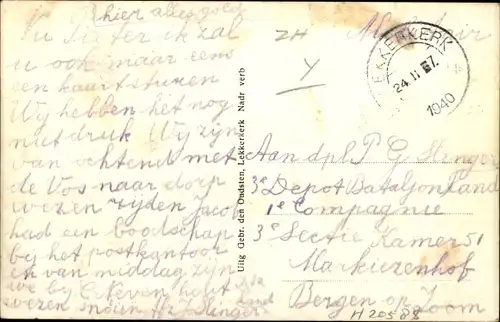 hier alles goed
nu Pieter ik zal
u ook maar eens
een kaart sturen
Wij hebben het nog
niet druk Wij zijn
van ochtend met
de Vos naar dorp
wezen rijden Jacob
had een boodschap
bij het postkantoor
en van middag zijn
we bij C Neven
wezen
Uitg Gebr. den Oudsten, Lekkerkerk Nadr verb
ZH
Y
LEKKERKERK
24 II 1940
Aan dpl P G Slinger
3e Depot Bataljon
1e Compagnie
3e Sectie Kamer 51
Markiezenhof
Bergen op Zoom
H 20588